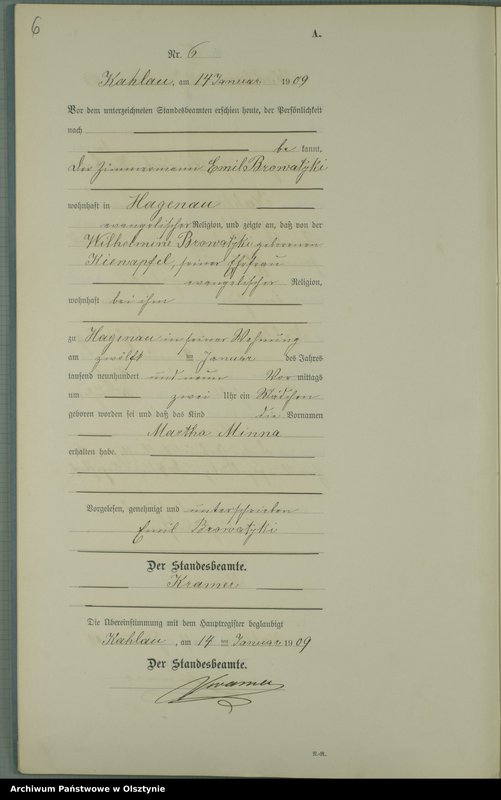 6
A.
Nr. 6
Kahlau, am 14 Januar 1909
Vor dem unterzeichneten Standesbeamten erschien heute, der Persönlichkeit
nach
be kannt,
der Zimmermann Emil Browatzki
wohnhaft in Hagenau
evangelischer Religion, und zeigte an, daß von der
Wilhelmine Browatzki geborenen
Kienapfel, seiner Ehefrau
evangelischer Religion,
wohnhaft bei ihm
zu Hagenau in seiner Wohnung
am zwölften Januar des Jahres
tausend neunhundert und neun Vor mittags
um zwei Uhr ein Mädchen
geboren worden sei und daß das Kind die Vornamen
Martha Minna
erhalten habe.
Vorgelesen, genehmigt und unterschrieben
Emil Browatzki
Der Standesbeamte.
Kramer
Die Übereinstimmung mit dem Hauptregister beglaubigt
Kahlau, am 14 ten Januar 1909
Der Standesbeamte.
Kramer
N.-R.
Archiwum Państwowe w Olsztynie